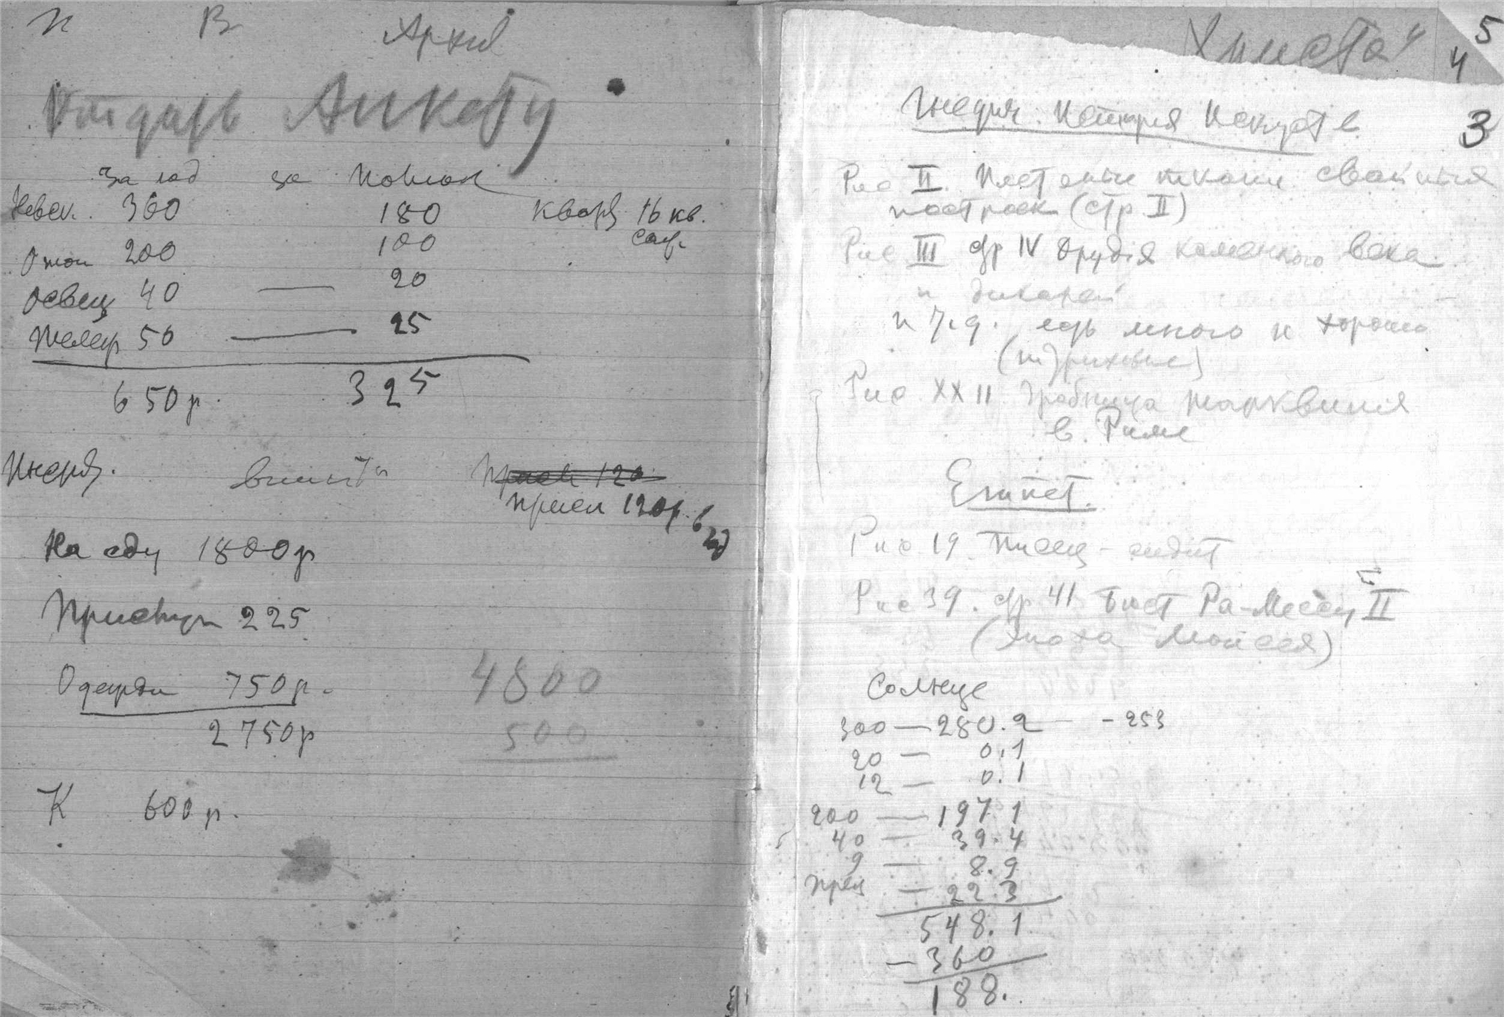 И В Архив
Отдать Анкету
За год за полгода
360 180 Кварт 16 кв.
саж.
Отоп 200 100
Освещ 40 — 20
50 — 25
650 р. 325
120
120 р.
На еду 1800 р
225
Одежда 750 р.
2750 р
4800
500
К 600 р.
5
4
3
Гнедич. История Искусств.
Рис II. свайных
построек (стр II)
Рис III стр IV Орудия каменного века
и дикарей
и т.д. есть много и хороших
Рис. XXII Гробница Тарквиния
в Риме
Египет.
Рис 19. Писец - сидит
Рис 39. стр 41 Бюст Ра-Мессу II
(Эпоха Моисея)
Солнце
300 — 280.2 — - 253
20 — 0.1
12 — 0.1
200 — 197.1
40 — 39.4
9 — 8.9
прец — 22.3
548.1
— 360
188.